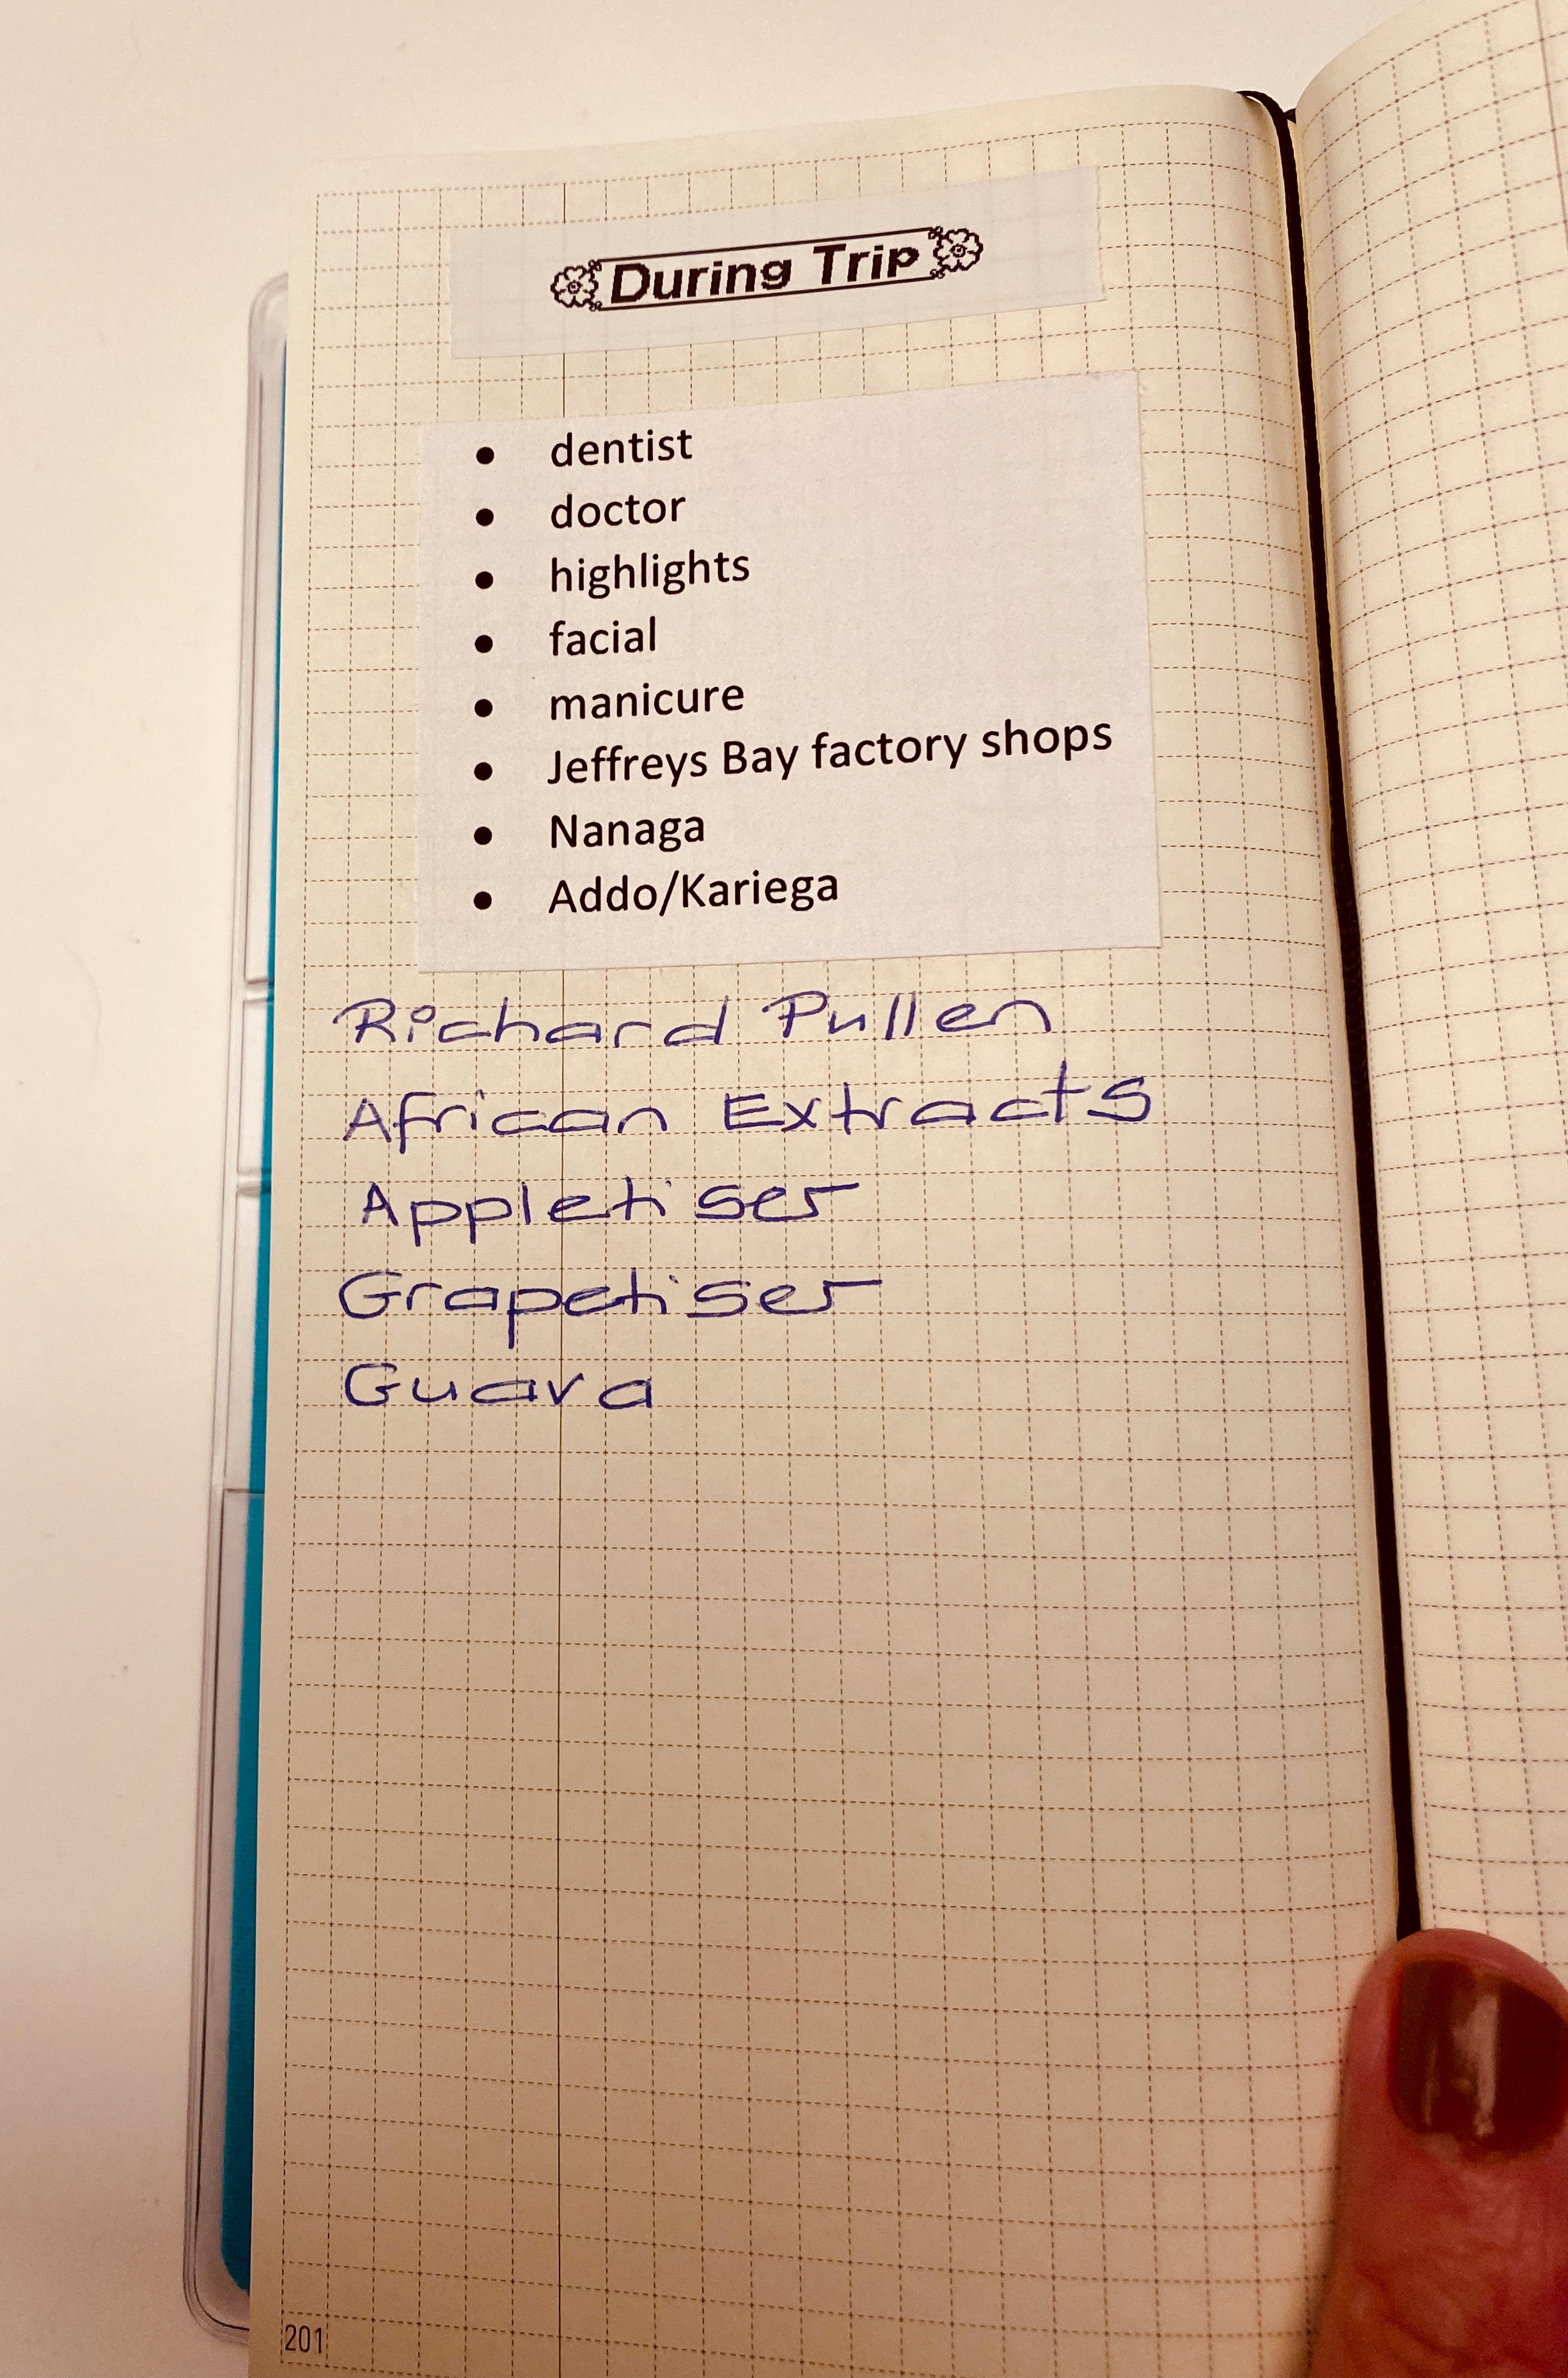 During Trip
• dentist
• doctor
• highlights
• facial
• manicure
• Jeffreys Bay factory shops
• Nanaga
• Addo/Kariega
Richard Pullen
African Extracts
Appletiser
Grapetiser
Guava
201